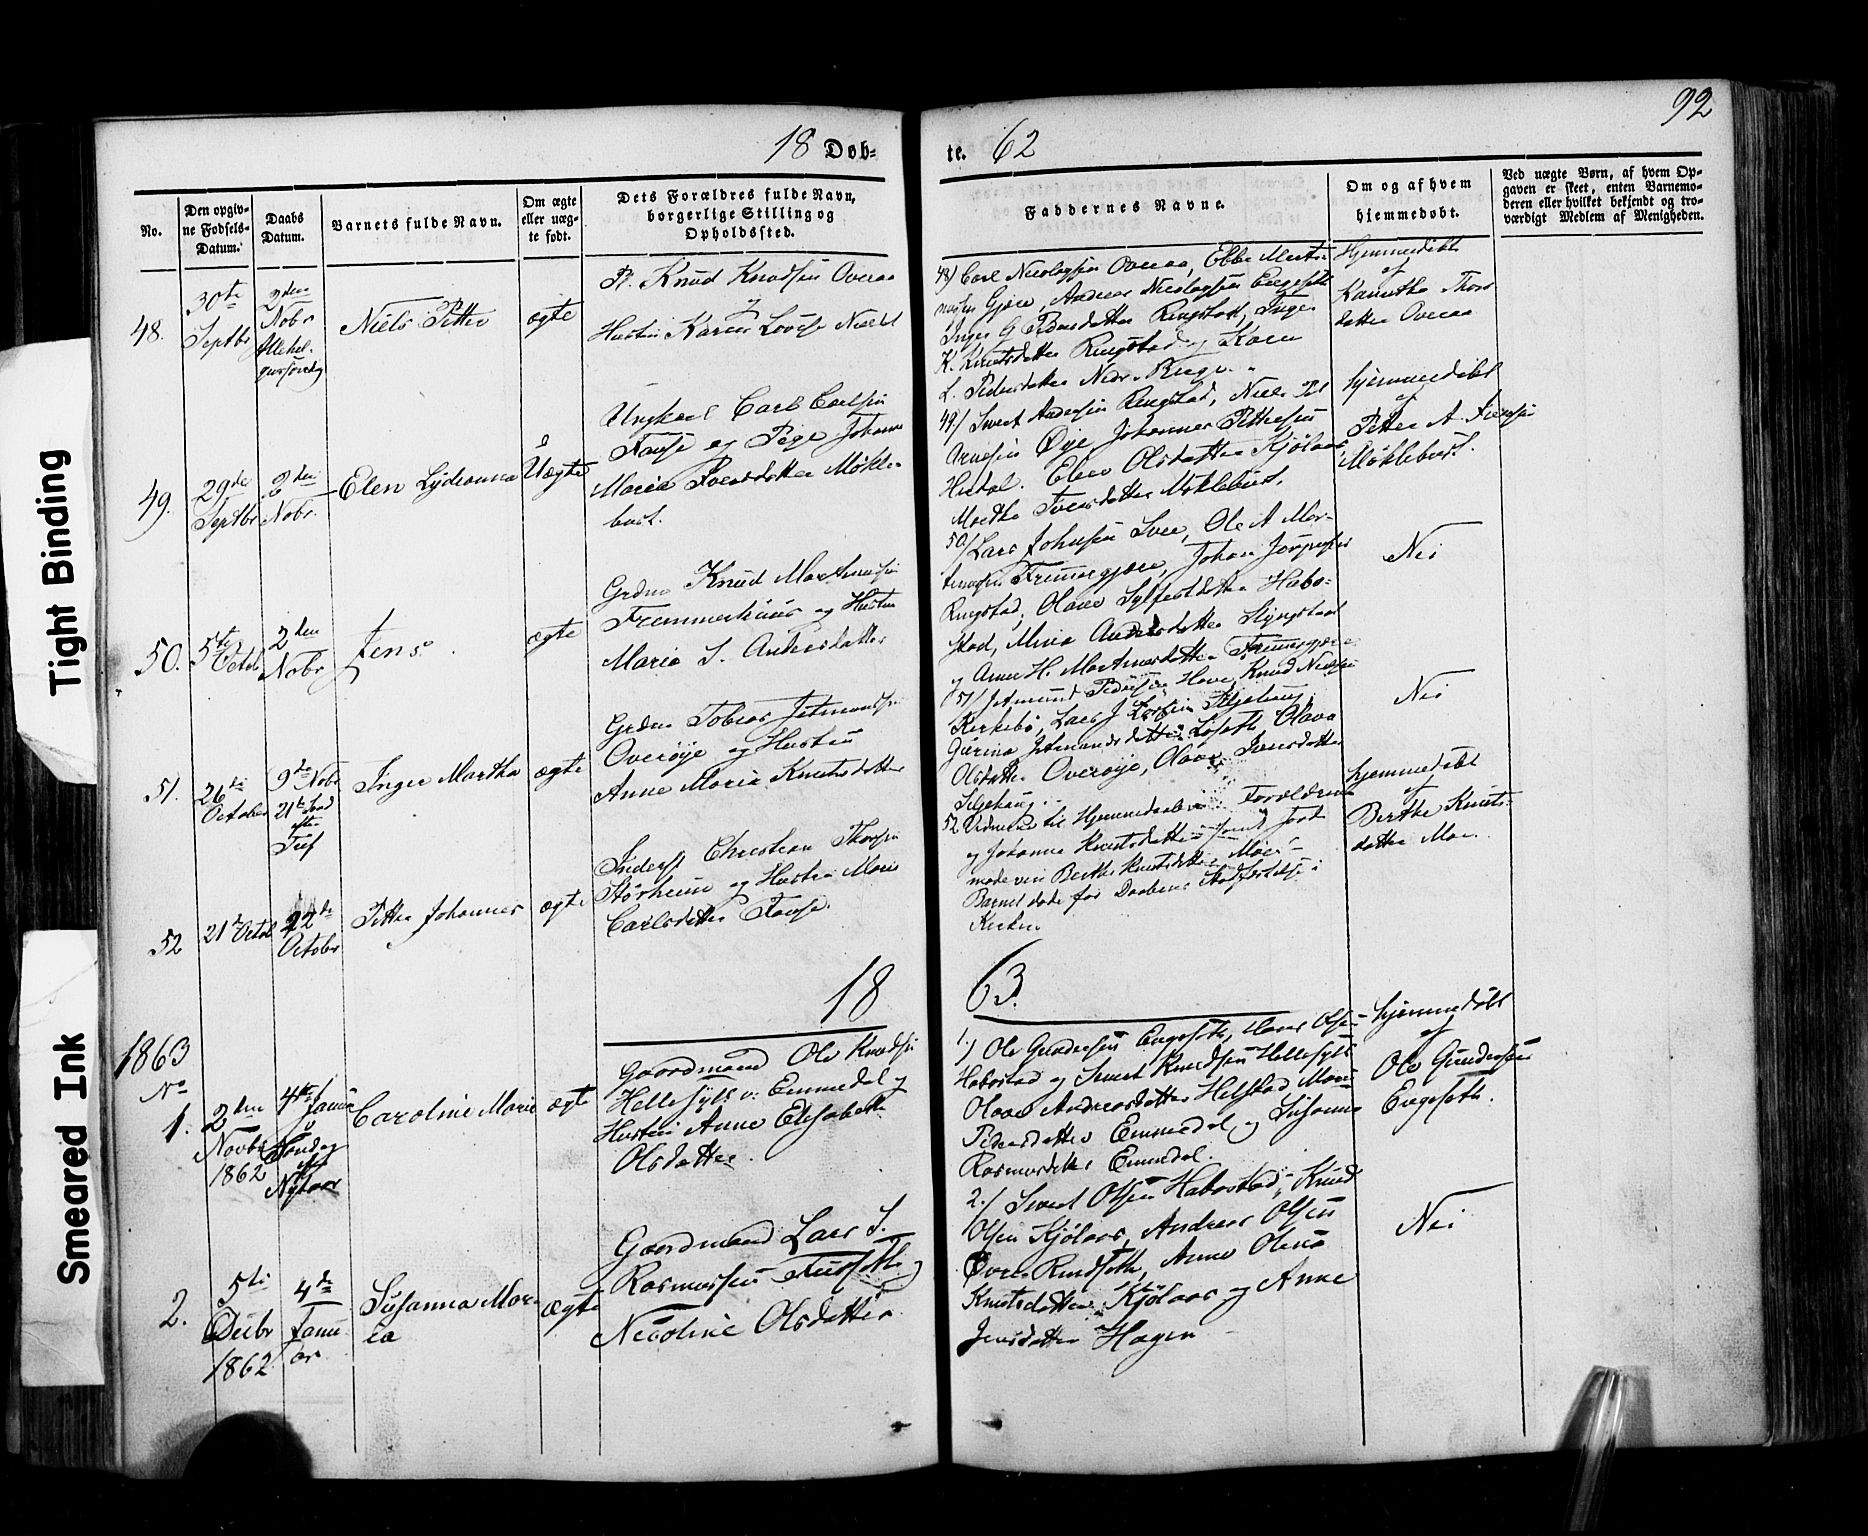 92
18 Døb-
te. 62
No.
Den opgiv-
ne Fødsels-
Datum.
Daabs
Datum.
Barnets fulde Navn.
Om ægte
eller uæg-
te født.
Dets Forældres fulde Navn,
borgerlige Stilling og
Opholdssted.
Faddernes Navne.
Om og af hvem
hjemmedøbt.
Ved uægte Børn, af hvem Op-
gaven er skeet, enten Barnemo-
deren eller hvilket bekjendt og tro-
værdigt Medlem af Menigheden.
48.
30te
Septbr
2den
Nobr
Niels Petter
ægte
Knud Knudsen Overaa
Hustru Karen Lovise
48/ Carl Nicolaysen Overaa, Ebbe
Gjære, Andreas Nicolaysen Engeseth
Inger G Pedersdatter Ringstad, Inger
K. Knutsdatter Ringstad og Karen
L. Pedersdatter
Hjemmedøbt
af
datter Overaa
49.
29de
Septbr
2den
Nobr.
Elen Lydianna
Uægte
Ungkarl Carl Carlsen
og Pige Johanne
Maria Iversdatter Møkle-
bust.
49/ Sivert Andersen Ringstad,
Arnesen Øye Johannes Pettersen
Elen Olsdatter Kjølaas
Martha Iversdatter Møklebust.
hjemmedøbt
af
Petter A. Iversen
Møklebust.
50.
5te
Octob
2den
Nobr
Jens
ægte
Grdm Knud Martinusen
Fremmerhuus og Hustru
Maria S. Andersdatter
50/ Lars Johnsen Svee, Ole A Mar-
tinusen Fremmergjære, Johan
Ringstad, Olave Sylfestdatter Habo-
stad, Mina Andersdatter Slyngstad
og Anne H. Martinusdatter Fremmergjære
Nei
51.
26de
October
9de Nobr
21de Sønd
efter
Tref
Inger Martha
ægte
Grdm Tobias Jetmundsen
Overøye og Hustru
Anne Maria Knutsdatter
51/ Jetmund Pedersen Hove, Knud Nielsen
Kirkebø, Lars J
Jetmundsdatter Løseth Olava
Olsdatter Overøye, Olave Iversdatter
Nei
52
21de Octob
22de
Octobr
Petter Johannes
ægte
Inderst Christian Thorsen
Størheim og Hustru Marie
Carlsdatter
52 Vidnerne til Hjemmedaaben Forældrene
og Johanne Knutsdatter samt Jord-
moderen Berthe Knutsdatter Moe.
Barnet døde før Daabens Stadfæstelse i
Kirken
hjemmedøbt
af
Berthe Knuts-
datter Moe.
18
63.
1863
No
1.
2den
Novbr
1862
4de
Januar
Søndag
efter
Nytaar
Caroline Marie
ægte
Gaardmand Ole Knudsen
Hellesylt v: Emmedal og
Hustru Anne Elisabeth
Olsdatter.
1.
) Ole Gundersen Engeseth, Hans Olsen
Habostad og Sivert Knudsen Hellesylt
Olave Andreasdatter Helstad
Pedersdatter Emmedal og Susanne
Rasmusdatter Emmedal.
hjemmedøbt
af
Ole Gundersen
Engeseth.
2.
5te
Decbr
1862
4de
Janu-
ar
Susanna Mar-
ia
ægte
Gaardmand Lars S.
Rasmussen
Nicoline Olsdatter.
2./ Sivert Olsen Habostad, Knud
Olsen Kjølaas, Andreas Olsen
Øvre Rindseth, Anne Olena
Knutsdatter Kjølaas og Anne
Jensdatter Hagen
Nei
Tight Binding
Smeared Ink